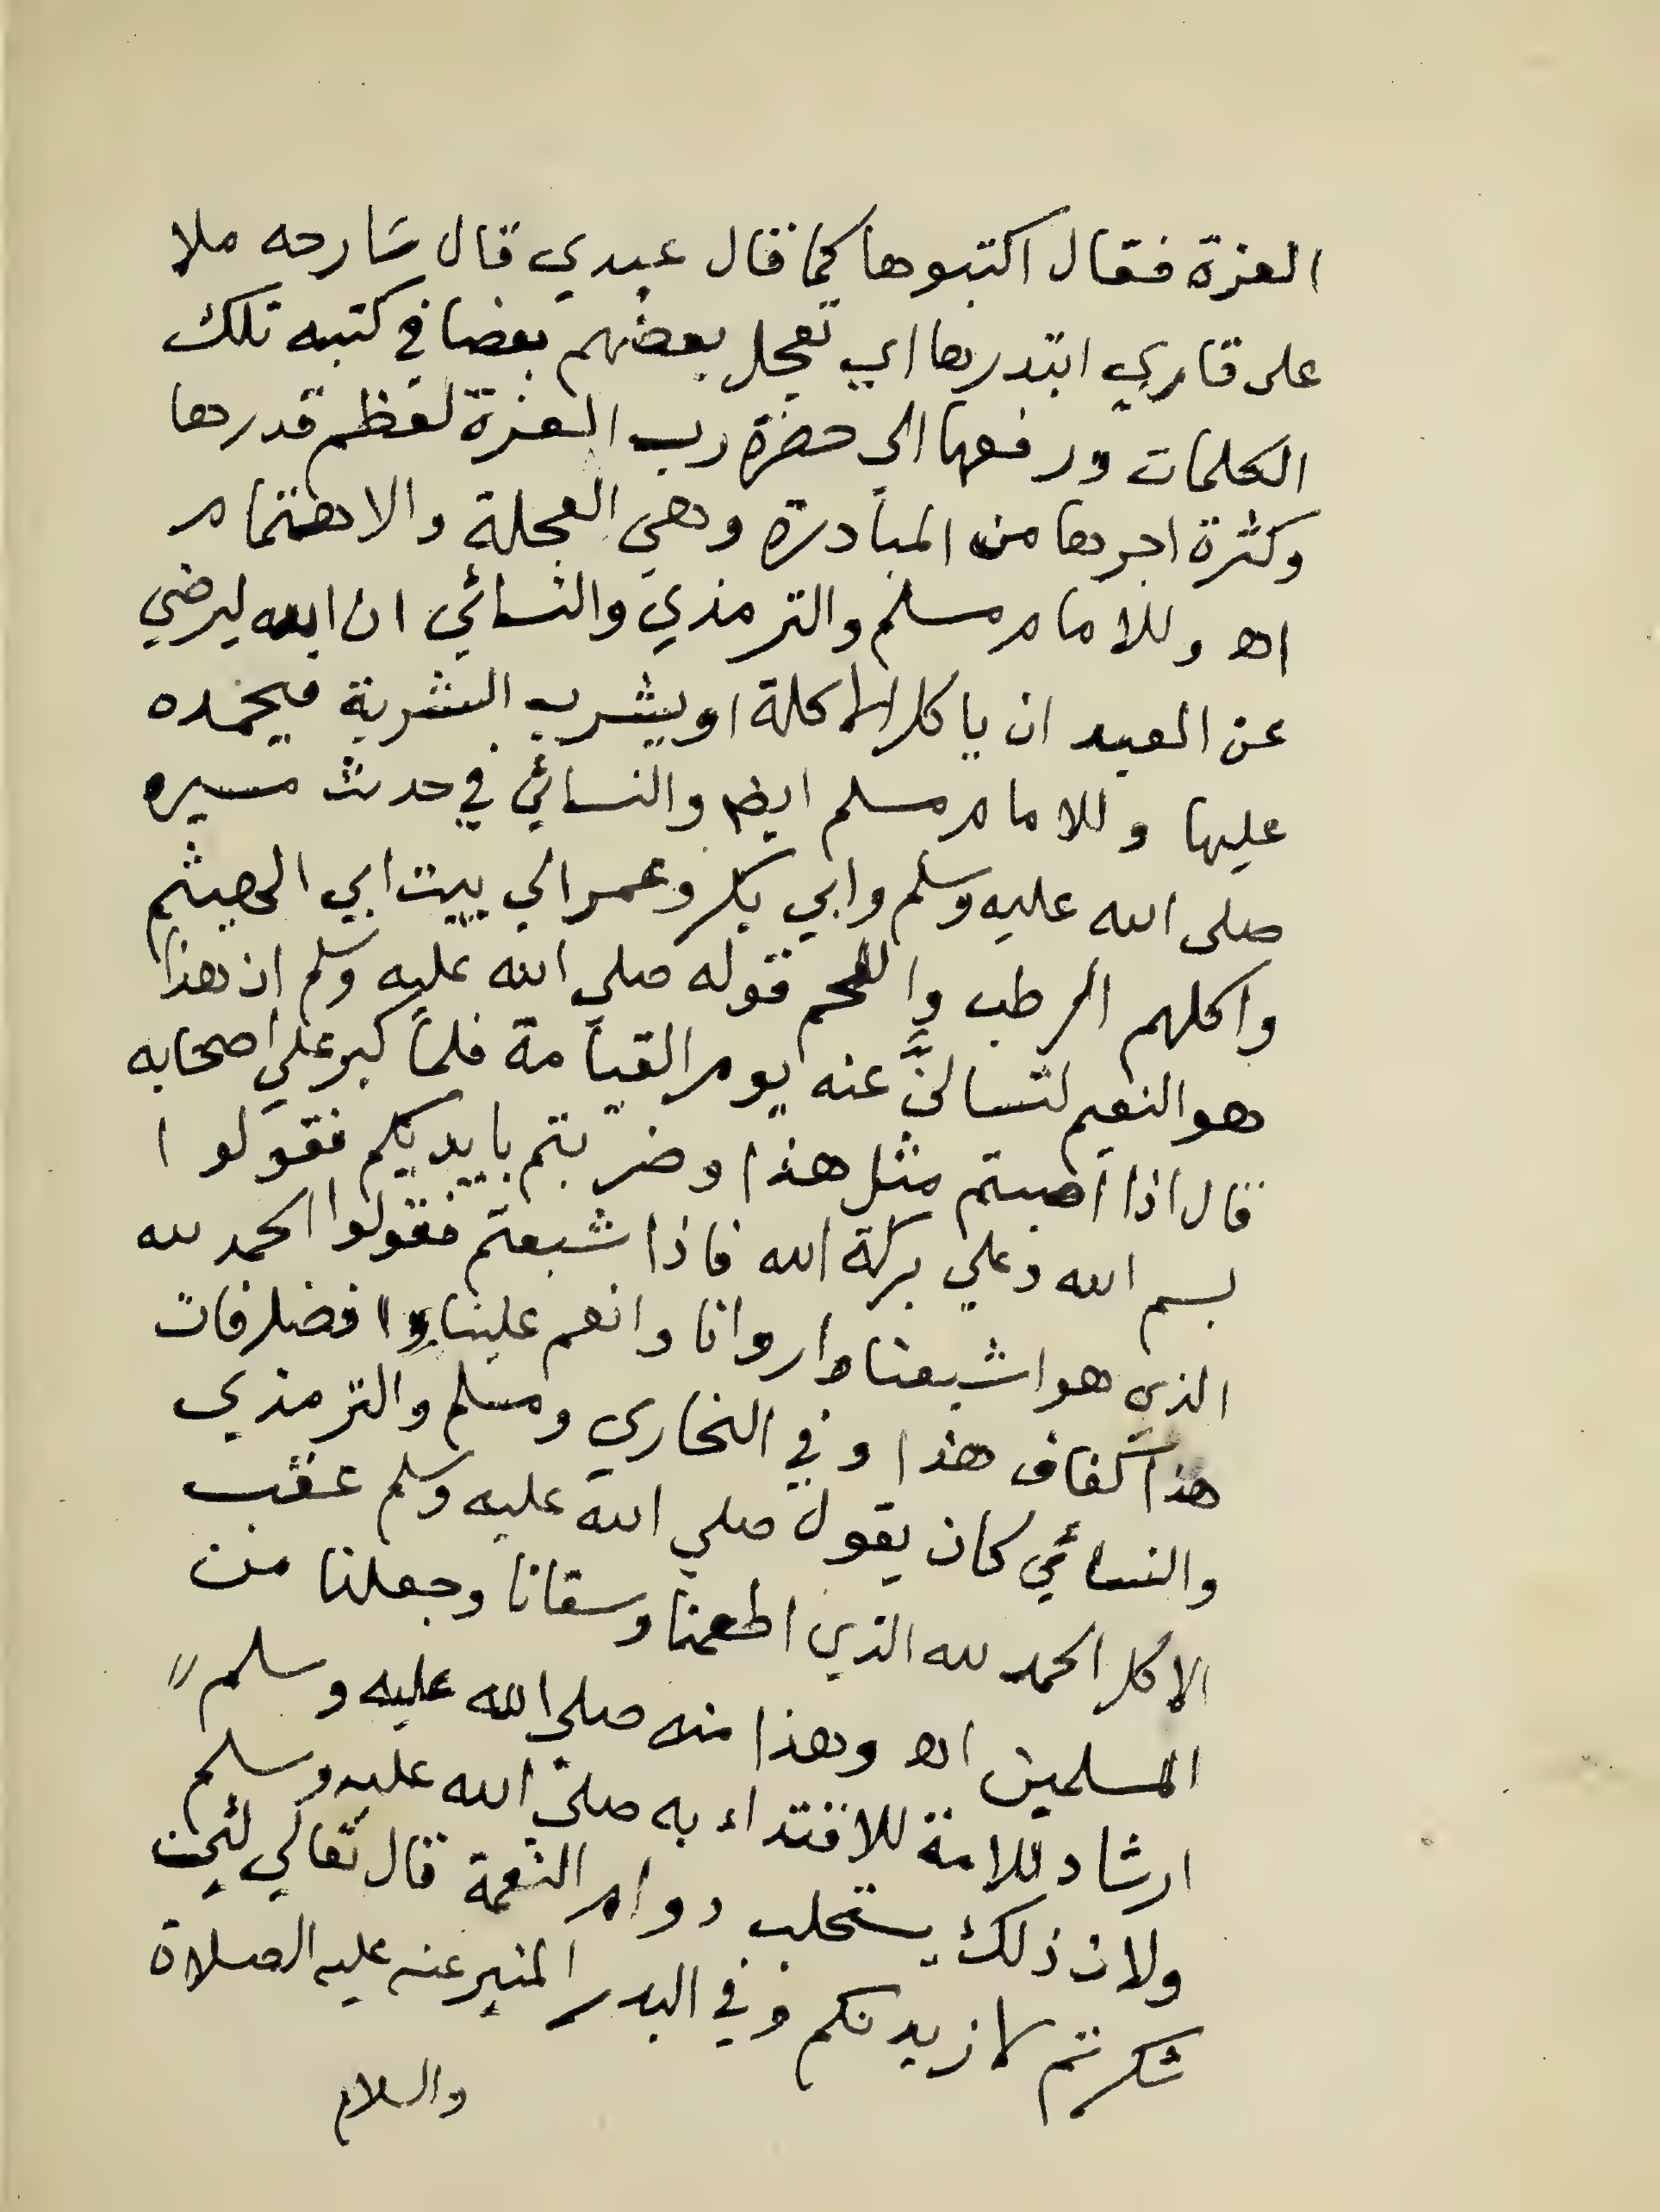 العزة فقال اكتبوها كما قال عبدي قال شارحه ملا
على قاري ابتدرها اي تعجل بعضهم بعضا في كتبه تلك
الكلمات ورفعها الي حضرة رب العزة لعظم قدرها
وكثرة اجرها من المبادرة وهي العجلة والاهتمام
اه وللامام مسلم والترمذي والنسائي ان الله ليرضي
عن العبد ان ياكل الاكلة او يشرب الشربة فيحمده
عليها وللامام مسلم ايضا والنسائي في حديث مسيره
صلى الله عليه وسلم وابي بكر وعمر الي بيت ابي الهيثم
واكلهم الرطب واللحم قوله صلي الله عليه وسلم ان هذا
هو النعيم لتسالنَّ عنه يوم القيامة فلما كبر علي اصحابه
قال اذا اصبتم مثل هذا وضربتم بايديكم فقولوا
بسم الله وعلي بركة الله فاذا شبعتم فقولوا الحمد لله
الذي هو اشبعنا واروانا وانعم علينا وافضل فان
هذا كفاف هذا وفي البخاري ومسلم والترمذي
والنسائي كان يقول صلي الله عليه وسلم عقب
الاكل الحمد لله الذي اطعمنا وسقانا وجعلنا من
المسلمين اه وهذا منه صلى الله عليه وسلم
ارشاد للامة للاقتداء به صلى الله عليه وسلم
ولان ذلك يستجلب دوام النعمة قال تعالي لئن
شكرتم لازيدنكم وفي البدر المنير عنه عليه الصلاة
والسلام